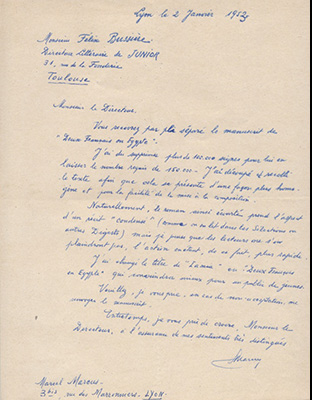 Lyon le 2 Janvier 1952
Monsieur Félix Bussière
Directeur Littéraire de JUNIOR
31, rue de la Fonderie
Toulouse
Monsieur le Directeur.
Vous recevrez par pli séparé le manuscrit de
"Deux Français en Egypte".
J'ai dû supprimer plus de signes pour lui en
laisser le nombre requis de 160.000 - J'ai découpé et recollé
le texte, afin que cela se présente d'une façon plus homo-
gène et pour la facilité de la mise à la composition.
Naturellement, le roman ainsi écourté prend l'aspect
d'un récit "condensé" (comme on en lit dans les Sélections ou
autres Digests) mais je pense que les lecteurs ne s'en
plaindront pas, l'action étant, de ce fait, plus rapide.
J'ai changé le titre de en "Deux Français
en Egypte" qui conviendra mieux pour un public de jeunes.
Veuillez, je vous prie, en cas de non-acceptation, me
renvoyer le manuscrit.
Entretemps, je vous prie de croire, Monsieur le
Directeur, à l'assurance de mes sentiments très distingués
Marcel Marcus
3 bis rue des Marronniers - LYON.